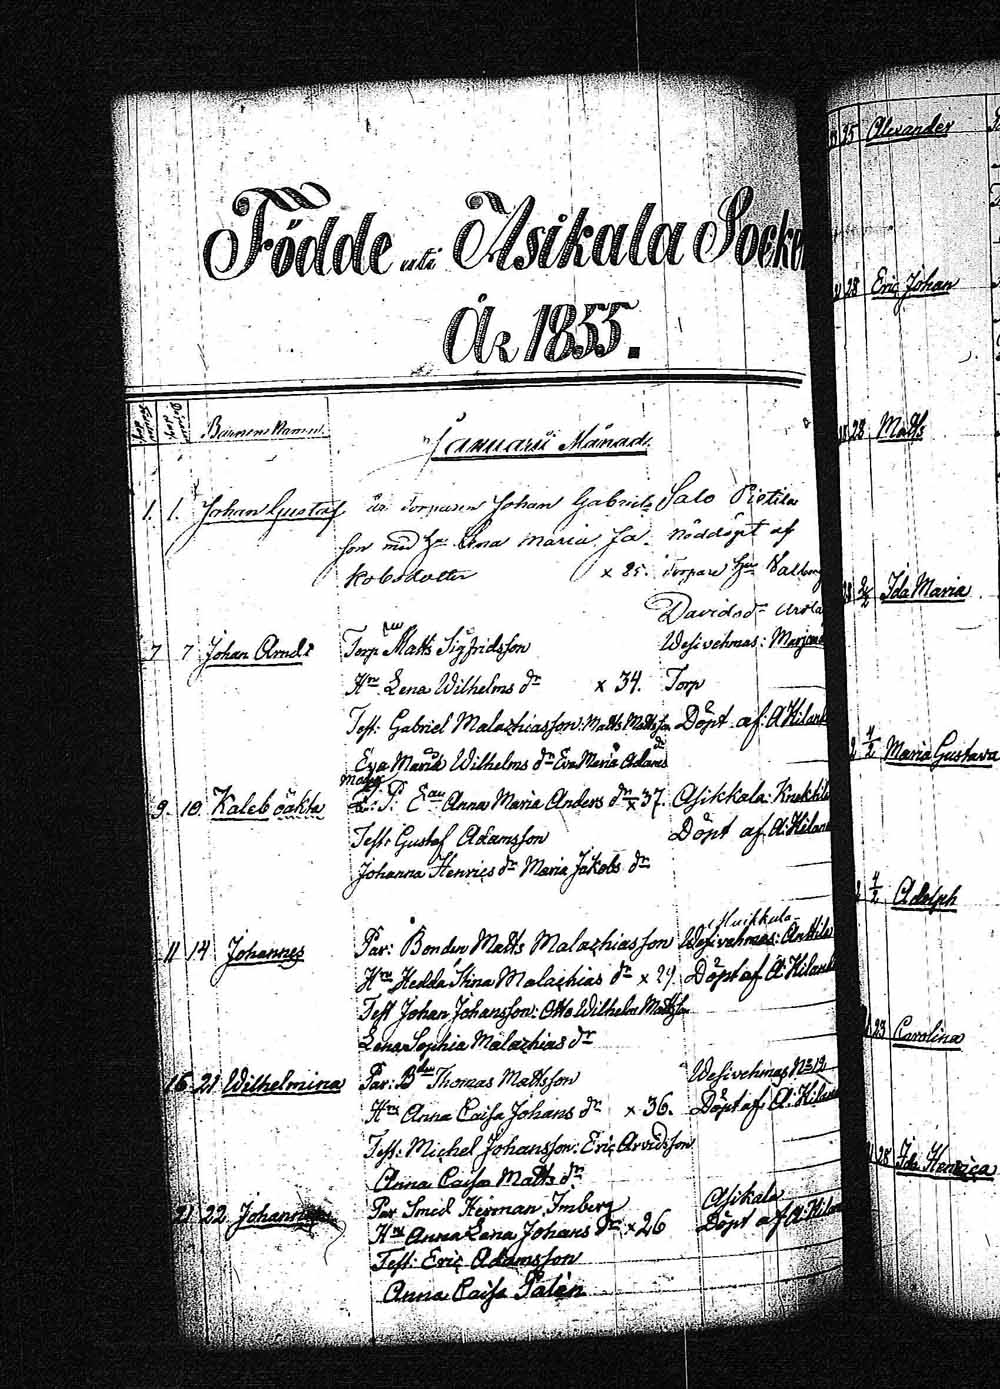 Födde uti Asikala Socken
År 1855.
Barnens Namn.
Januarii Månad.
1. 1. Johan Gustaf är Torparen Johan Gabriels Salo Pietila
son med Hu Lena Maria Ja- nöddöpt af
kobsdotter x 25. Torpare Hu Valborg
Davidsdr
7 7 Johan Arndt Torp Matts Sigfridsson Wesivehmas: Marjam
Hru Lena Wilhelms dr x 34. Torp
Test: Gabriel Malachiasson: Matts Mattsson Döpt af: A Kiland
Eva Maria Wilhelms dr Eva Maria Adams dr
9. 10. Kaleb oäkta L: P: Eau Anna Maria Anders dr x 37. Asikkala: Knektila
Test: Gustaf Adamsson Döpt af A: Kiland
Johanna Henrics dr Maria Jakobs dr
11 14 Johannes Par: Bonden Matts Malachiasson Wesivehmas: Anttila
Hru Hedda Stina Malachias dr x 29. Döpt af A: Kiland
Test Johan Johansson: Otto Wilhelm Mattsson
Lena Sophia Malachias dr
16 21 Wilhelmina Par: Bden Thomas Mattsson Wesivehmas No 12
Hru Anna Caisa Johans dr x 36. Döpt af: A: Kiland
Test: Michel Johansson: Eric Arvidsson
Anna Caisa Matts dr
21 22 Par Smed Herman Imberg Asikala
Hru Anna Lena Johans dr x 26 Döpt af A: Kiland
Test: Eric Adamsson
Anna Caisa Palén
25 Alexander
28 Eric Johan
28 Matts
Ida Maria
4/2 Maria Gustava
4/2 Adolph
23 Carolina
28 Ida Henrica